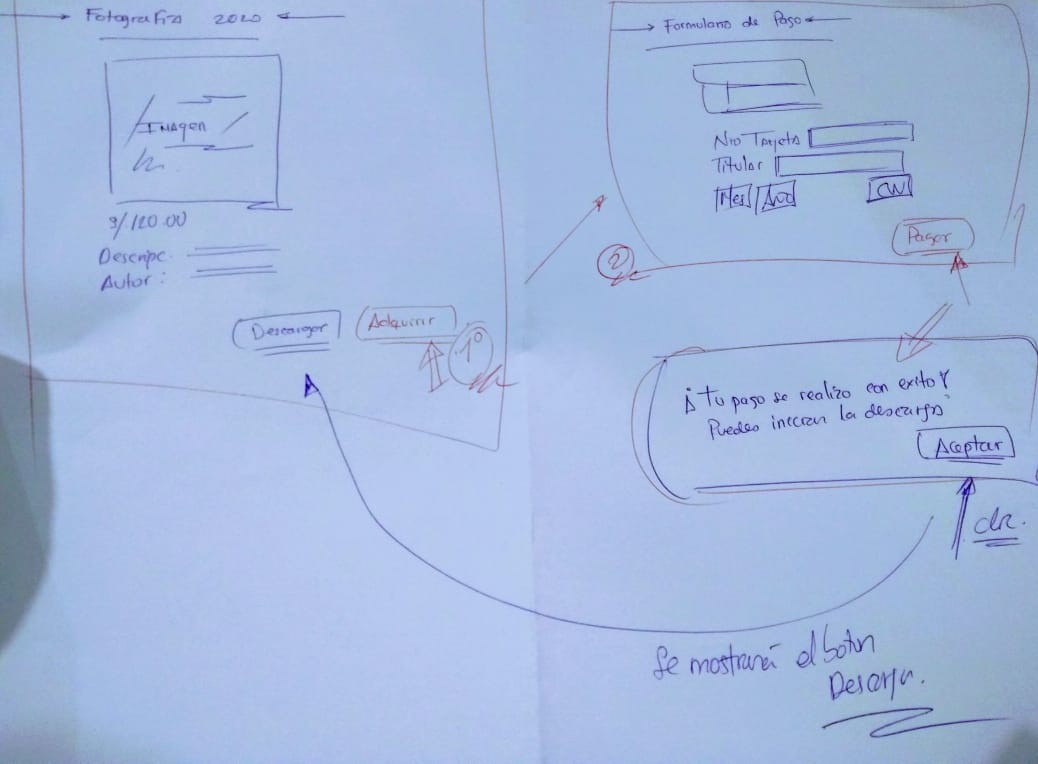 Fotografia 2020
Imagen
S/.120.00
Descripc.
Autor:
Descargar
Adquirir
1º
Formulario de Pago
Nro Tarjeta
Titular
Mes Año
Pagar
2
¡Tu pago se realizo con exito y
Puedes iniciar la descarga
Aceptar
Se mostrará el botón
Descarga.